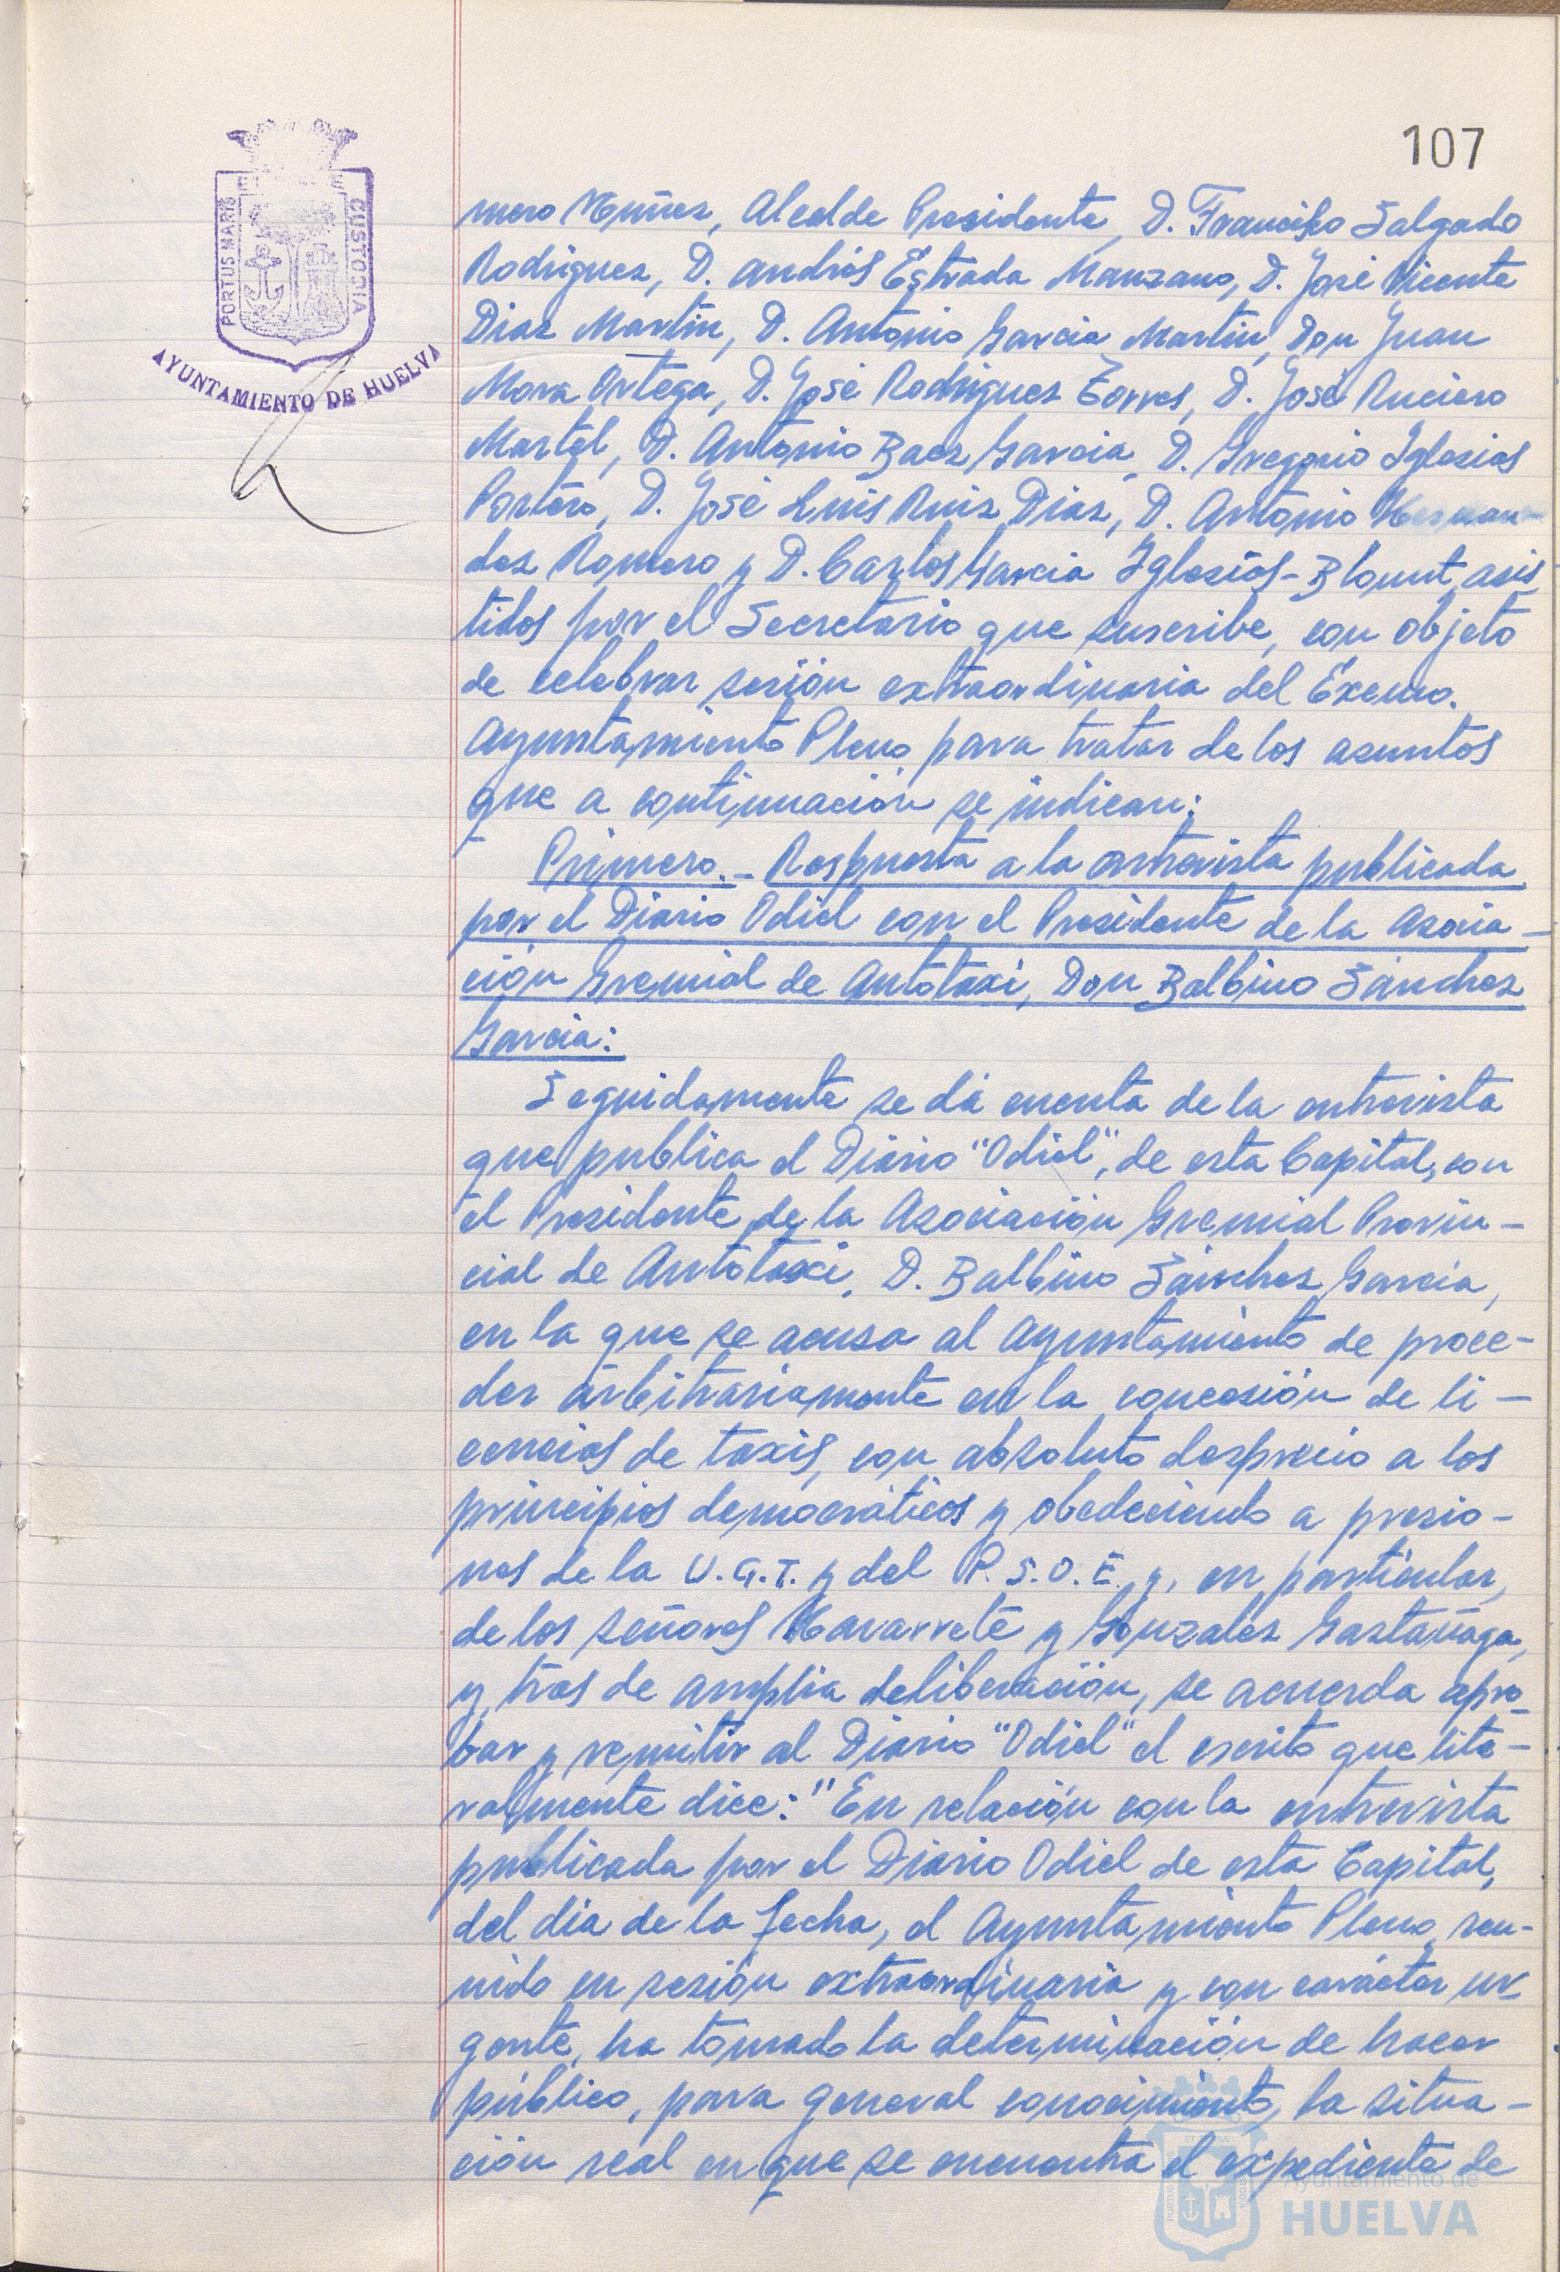 107
PORTUS MARIS
CUSTODIA
AYUNTAMIENTO DE HUELVA
mero Núñez, Alcalde Presidente, D. Francisco Salgado
Rodríguez, D. Andrés Estrada Manzano, D. José Vicente
Díaz Martín, D. Antonio García Martín, Don Juan
Mora Ortega, D. José Rodríguez Torres, D. José Ruciero
Martel, D. Antonio Baez García, D. Gregorio Iglesias
Portero, D. José Luis Ruiz Díaz, D. Antonio Hernan-
dez Romero y D. Carlos García Iglesias-Blount, asis
tidos por el Secretario que suscribe, con objeto
de celebrar sesión extraordinaria del Excmo.
Ayuntamiento Pleno para tratar de los asuntos
que a continuación se indican:
Primero.- Respuesta a la entrevista publicada
por el Diario Odiel con el Presidente de la Asocia-
ción Gremial de Autotaxi, Don Balbino Sánchez
García:
Seguidamente se dá cuenta de la entrevista
que publica el Diario "Odiel", de esta Capital, con
el Presidente de la Asociación Gremial Provin-
cial de Autotaxi, D. Balbino Sánchez García,
en la que se acusa al Ayuntamiento de proce-
der arbitrariamente en la concesión de li-
cencias de taxis, con absoluto desprecio a los
principios democráticos y obedeciendo a presio-
nes de la U.G.T. y del P.S.O.E. y, en particular,
de los señores Navarrete y González Gaztañaga,
y, tras de amplia deliberación, se acuerda apro-
bar y remitir al Diario "Odiel" el escrito que lite-
ralmente dice: "En relación con la entrevista
publicada por el Diario Odiel de esta Capital,
del día de la fecha, el Ayuntamiento Pleno, reu-
nido en sesión extraordinaria y con carácter ur
gente, ha tomado la determinación de hacer
público, para general conocimiento, la situa-
ción real en que se encuentra el expediente de
Ayuntamiento de
HUELVA